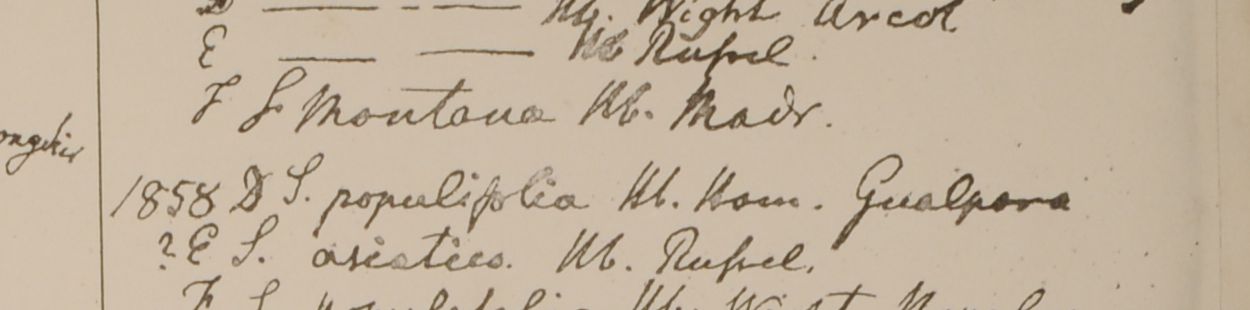 D — - — Hb. Wight Arcot
E — — Hb Rufsel.
F S montana Hb. Madr.
1858 D S. populifolia Hb. Ham. Gualpara
? E S. asiatica Hb. Rufsel.
F S. populifolia Hb. Wight